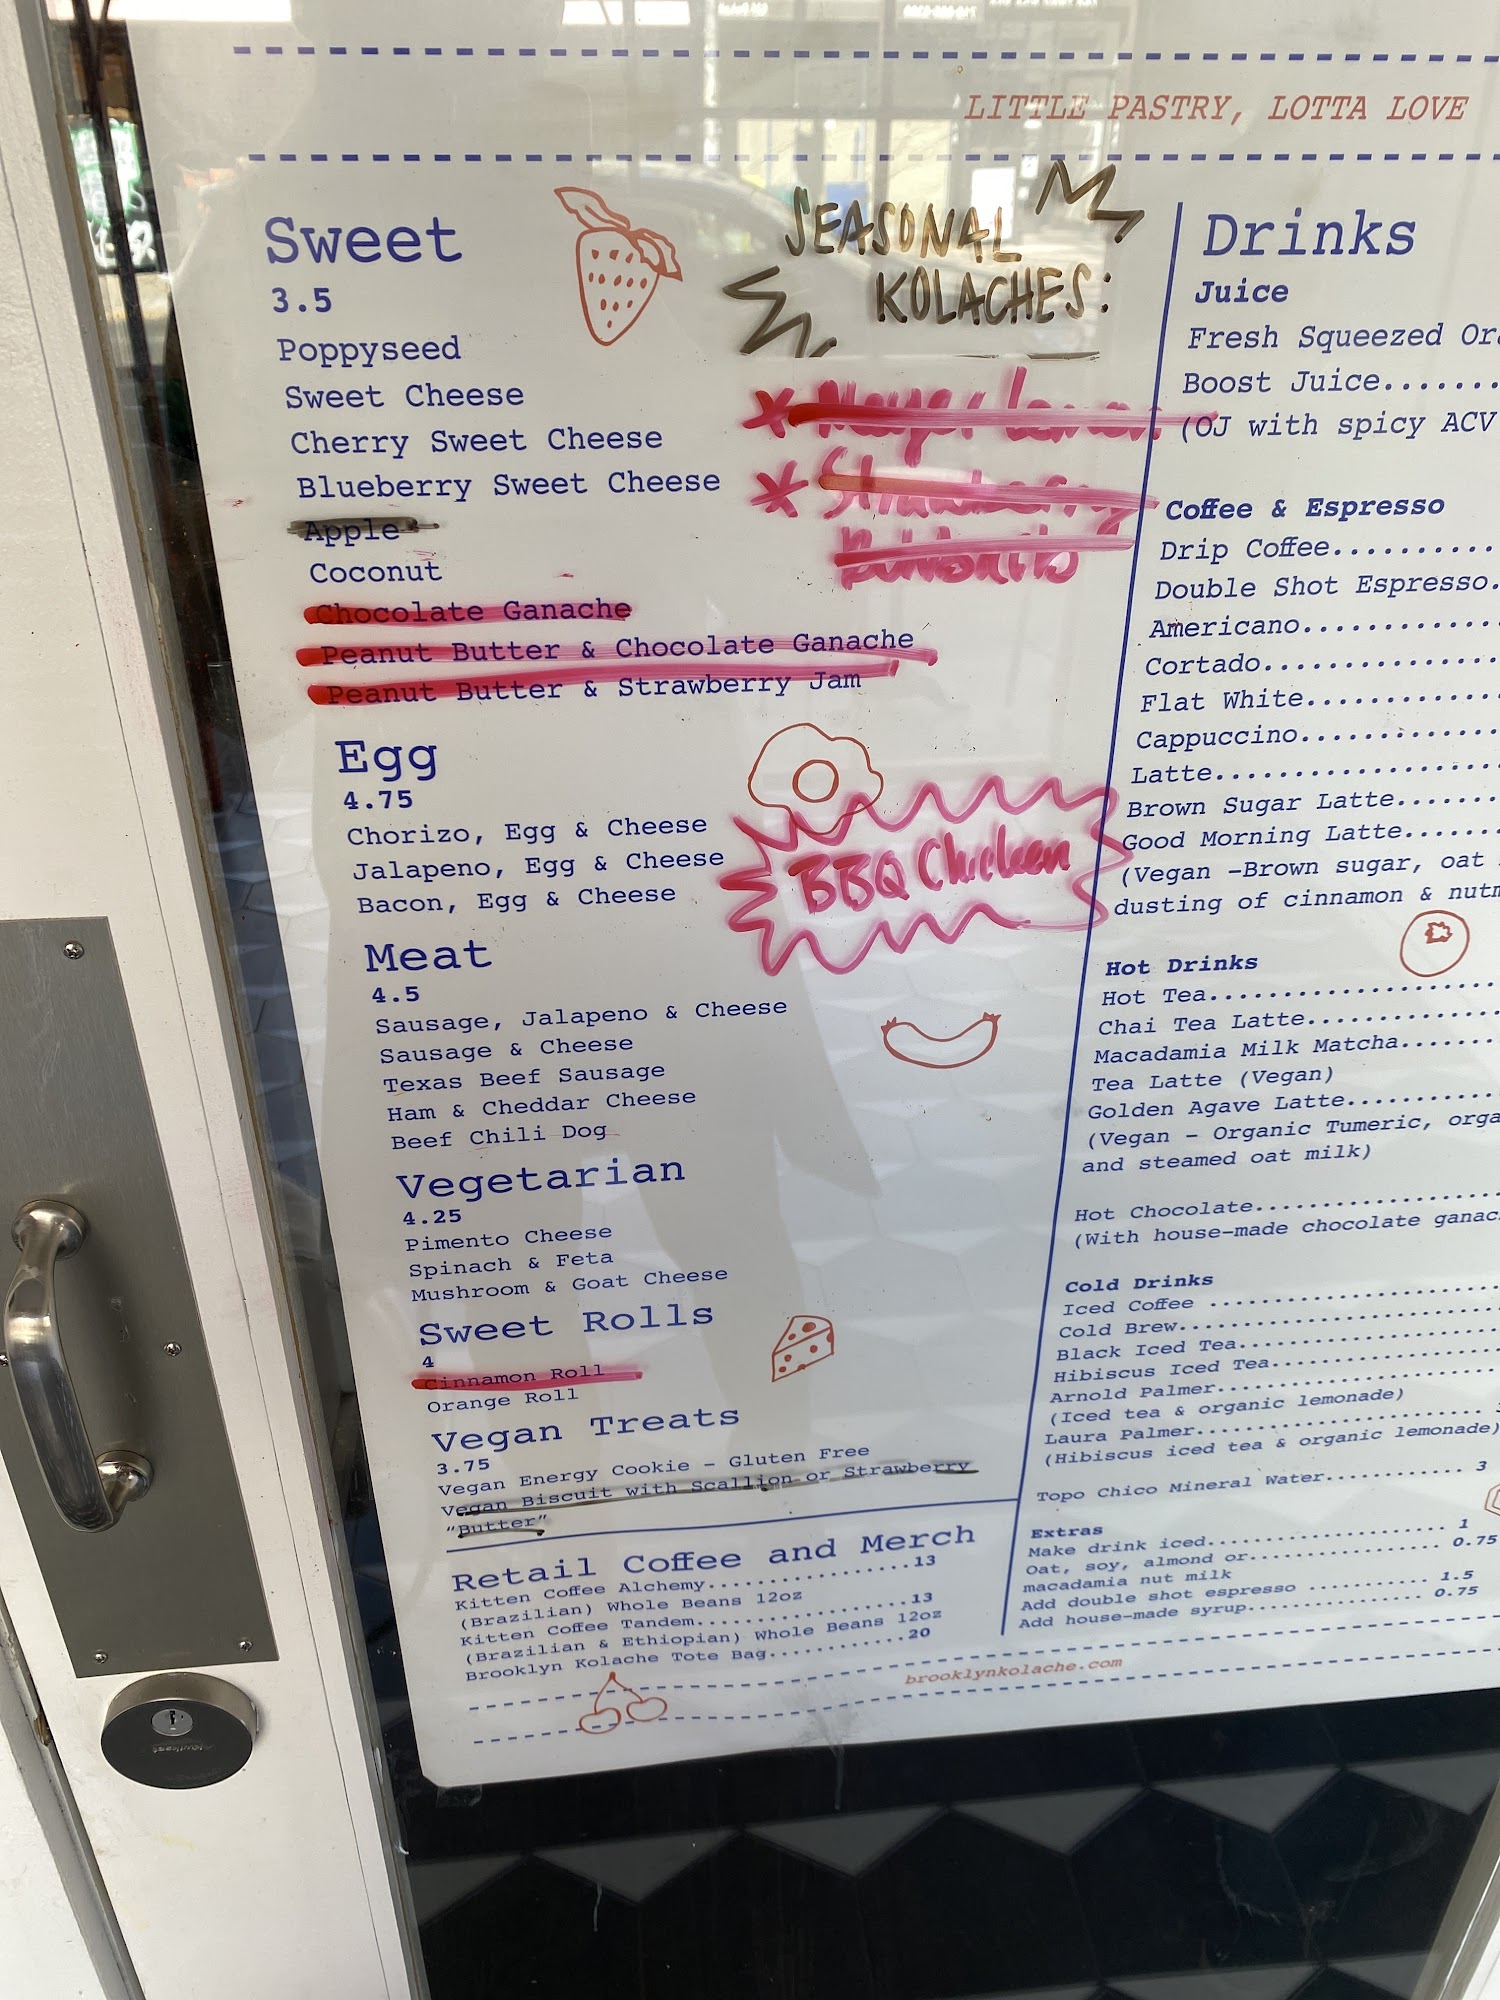 LITTLE PASTRY, LOTTA LOVE
Sweet
3.5
Poppyseed
Sweet Cheese
Cherry Sweet Cheese
Blueberry Sweet Cheese
Apple
Coconut
Chocolate Ganache
Peanut Butter & Chocolate Ganache
Peanut Butter & Strawberry Jam
SEASONAL
KOLACHES:
Meyer Lemon
Strawberry
Egg
4.75
Chorizo, Egg & Cheese
Jalapeno, Egg & Cheese
Bacon, Egg & Cheese
BBQ Chicken
Meat
4.5
Sausage, Jalapeno & Cheese
Sausage & Cheese
Texas Beef Sausage
Ham & Cheddar Cheese
Beef Chili Dog
Vegetarian
4.25
Pimento Cheese
Spinach & Feta
Mushroom & Goat Cheese
Sweet Rolls
4
Cinnamon Roll
Orange Roll
Vegan Treats
3.75
Vegan Energy Cookie - Gluten Free
Vegan Biscuit with Scallion or Strawberry
"Butter"
Retail Coffee and Merch
Kitten Coffee Alchemy................13
(Brazilian) Whole Beans 12oz
Kitten Coffee Tandem.................13
(Brazilian & Ethiopian) Whole Beans 12oz
Brooklyn Kolache Tote Bag..........20
Drinks
Juice
Fresh Squeezed
Boost Juice.......
(OJ with spicy ACV
Coffee & Espresso
Drip Coffee..........
Double Shot Espresso.
Americano............
Cortado..............
Flat White...........
Cappuccino...........
Latte................
Brown Sugar Latte.......
Good Morning Latte......
(Vegan -Brown sugar, oat
dusting of cinnamon &
Hot Drinks
Hot Tea...................
Chai Tea Latte.............
Macadamia Milk Matcha.......
Tea Latte (Vegan)
Golden Agave Latte..........
(Vegan - Organic Tumeric,
and steamed oat milk)
Hot Chocolate.................
(With house-made chocolate
Cold Drinks
Iced Coffee ..................
Cold Brew.....................
Black Iced Tea.................
Hibiscus Iced Tea..............
Arnold Palmer..................
(Iced tea & organic lemonade)
Laura Palmer...................
(Hibiscus iced tea & organic lemonade)
Topo Chico Mineral Water........... 3
Extras
Make drink iced...................... 1
Oat, soy, almond or................. 0.75
macadamia nut milk
Add double shot espresso ........... 1.5
Add house-made syrup............... 0.75
brooklynkolache.com